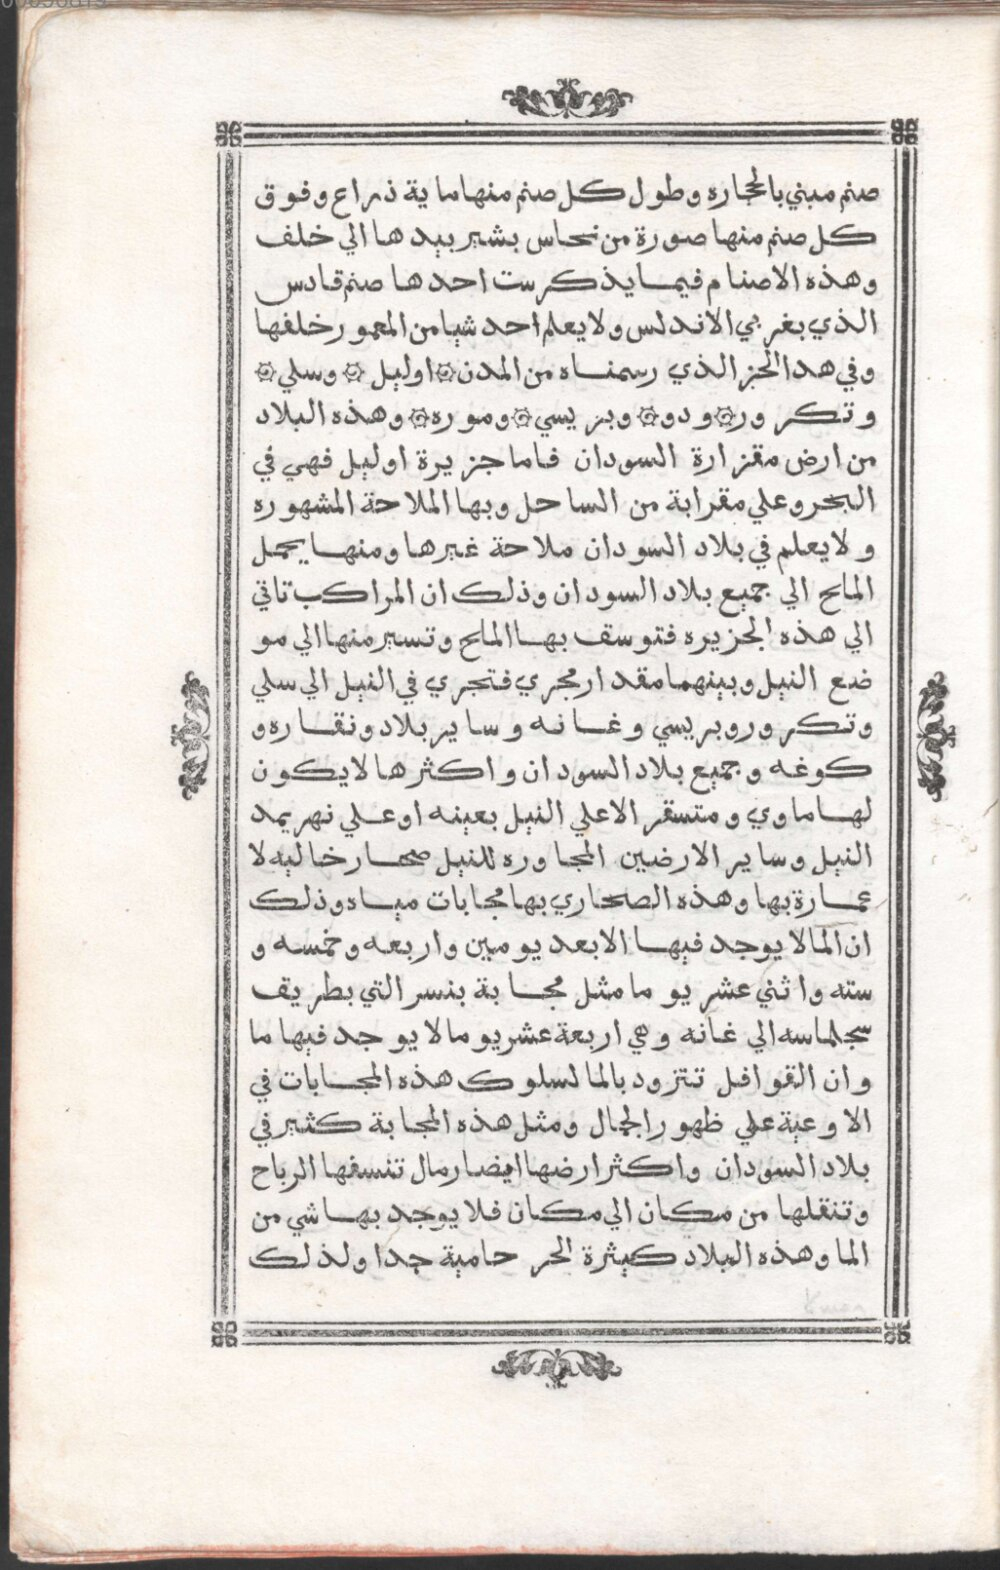 صنم مبني بالحجاره وطول كل صنم منها ماية ذراع وفوق
كل صنم منها صورة من نحاس بشير بيدها الي خلف
وهذه الاصنام فيما يذكر ست احدها صنم قادس
الذي بغربي الاندلس ولا يعلم احد شيا من المعمور خلفها
وفي هدا الجز الذي رسمناه من المدن اوليل وسلي
وتكرور ودو وبريسي وموره وهذه البلاد
من ارض مقزارة السودان فاما جزيرة اوليل فهي في
البحر وعلي مقرابة من الساحل وبها الملاحة المشهوره
ولا يعلم في بلاد السودان ملاحة غيرها ومنها يحمل
الملح الي جميع بلاد السودان وذلك ان المراكب تاتي
الي هذه الجزيره فتوسق بها الملح وتسير منها الي مو
ضع النيل وبينهما مقدار مجري فتجري في النيل الي سلي
وتكرور وبريسي وغانه وساير بلاد ونقاره و
كوغه وجميع بلاد السودان واكثرها لا يكون
لها ماوي ومتسقر الا علي النيل بعينه او علي نهر يمد
النيل وساير الارضين المجاوره للنيل صحار خاليه لا
عمارة بها وهذه الصحاري بها مجابات مياه وذلك
ان الما لا يوجد فيها الا بعد يومين واربعه وخمسه و
سته واثني عشر يوما مثل مجابة بنسر التي بطريق
سجلماسه الي غانه وهي اربعة عشر يوما لا يوجد فيها ما
وان القوافل تتزود بالما لسلوك هذه المجابات في
الاوعية علي ظهور الجمال ومثل هذه المجابة كثير في
بلاد السودان واكثر ارضها ايضا رمال تنسفها الرياح
وتنقلها من مكان الي مكان فلا يوجد بها شي من
الما وهذه البلاد كيثرة الحر حامية جدا ولذلك